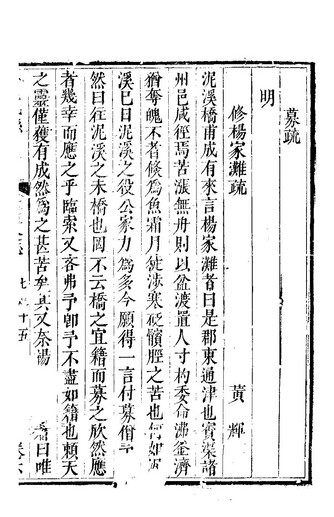 募疏
明
修楊家灘疏 黃輝
泥溪橋甫成有來言楊家灘者曰是郡東通津也實渠諸
州邑咸徑焉苦漲無舟則以盆渡置人寸杓委命沸釜濟
猶奪魄不者候為魚霜月徒涉寒砭髓脛之苦也何如
溪已日泥溪之役公家力為多今願得一言付募僧予
然曰往泥溪之未橋也罔不云橋之宜籍而募之欣然應
者幾幸而應之乎臨索又吝弗予朝予不盡如籍也賴天
之靈僅獲有成然為之甚苦矣其又奈
曰唯